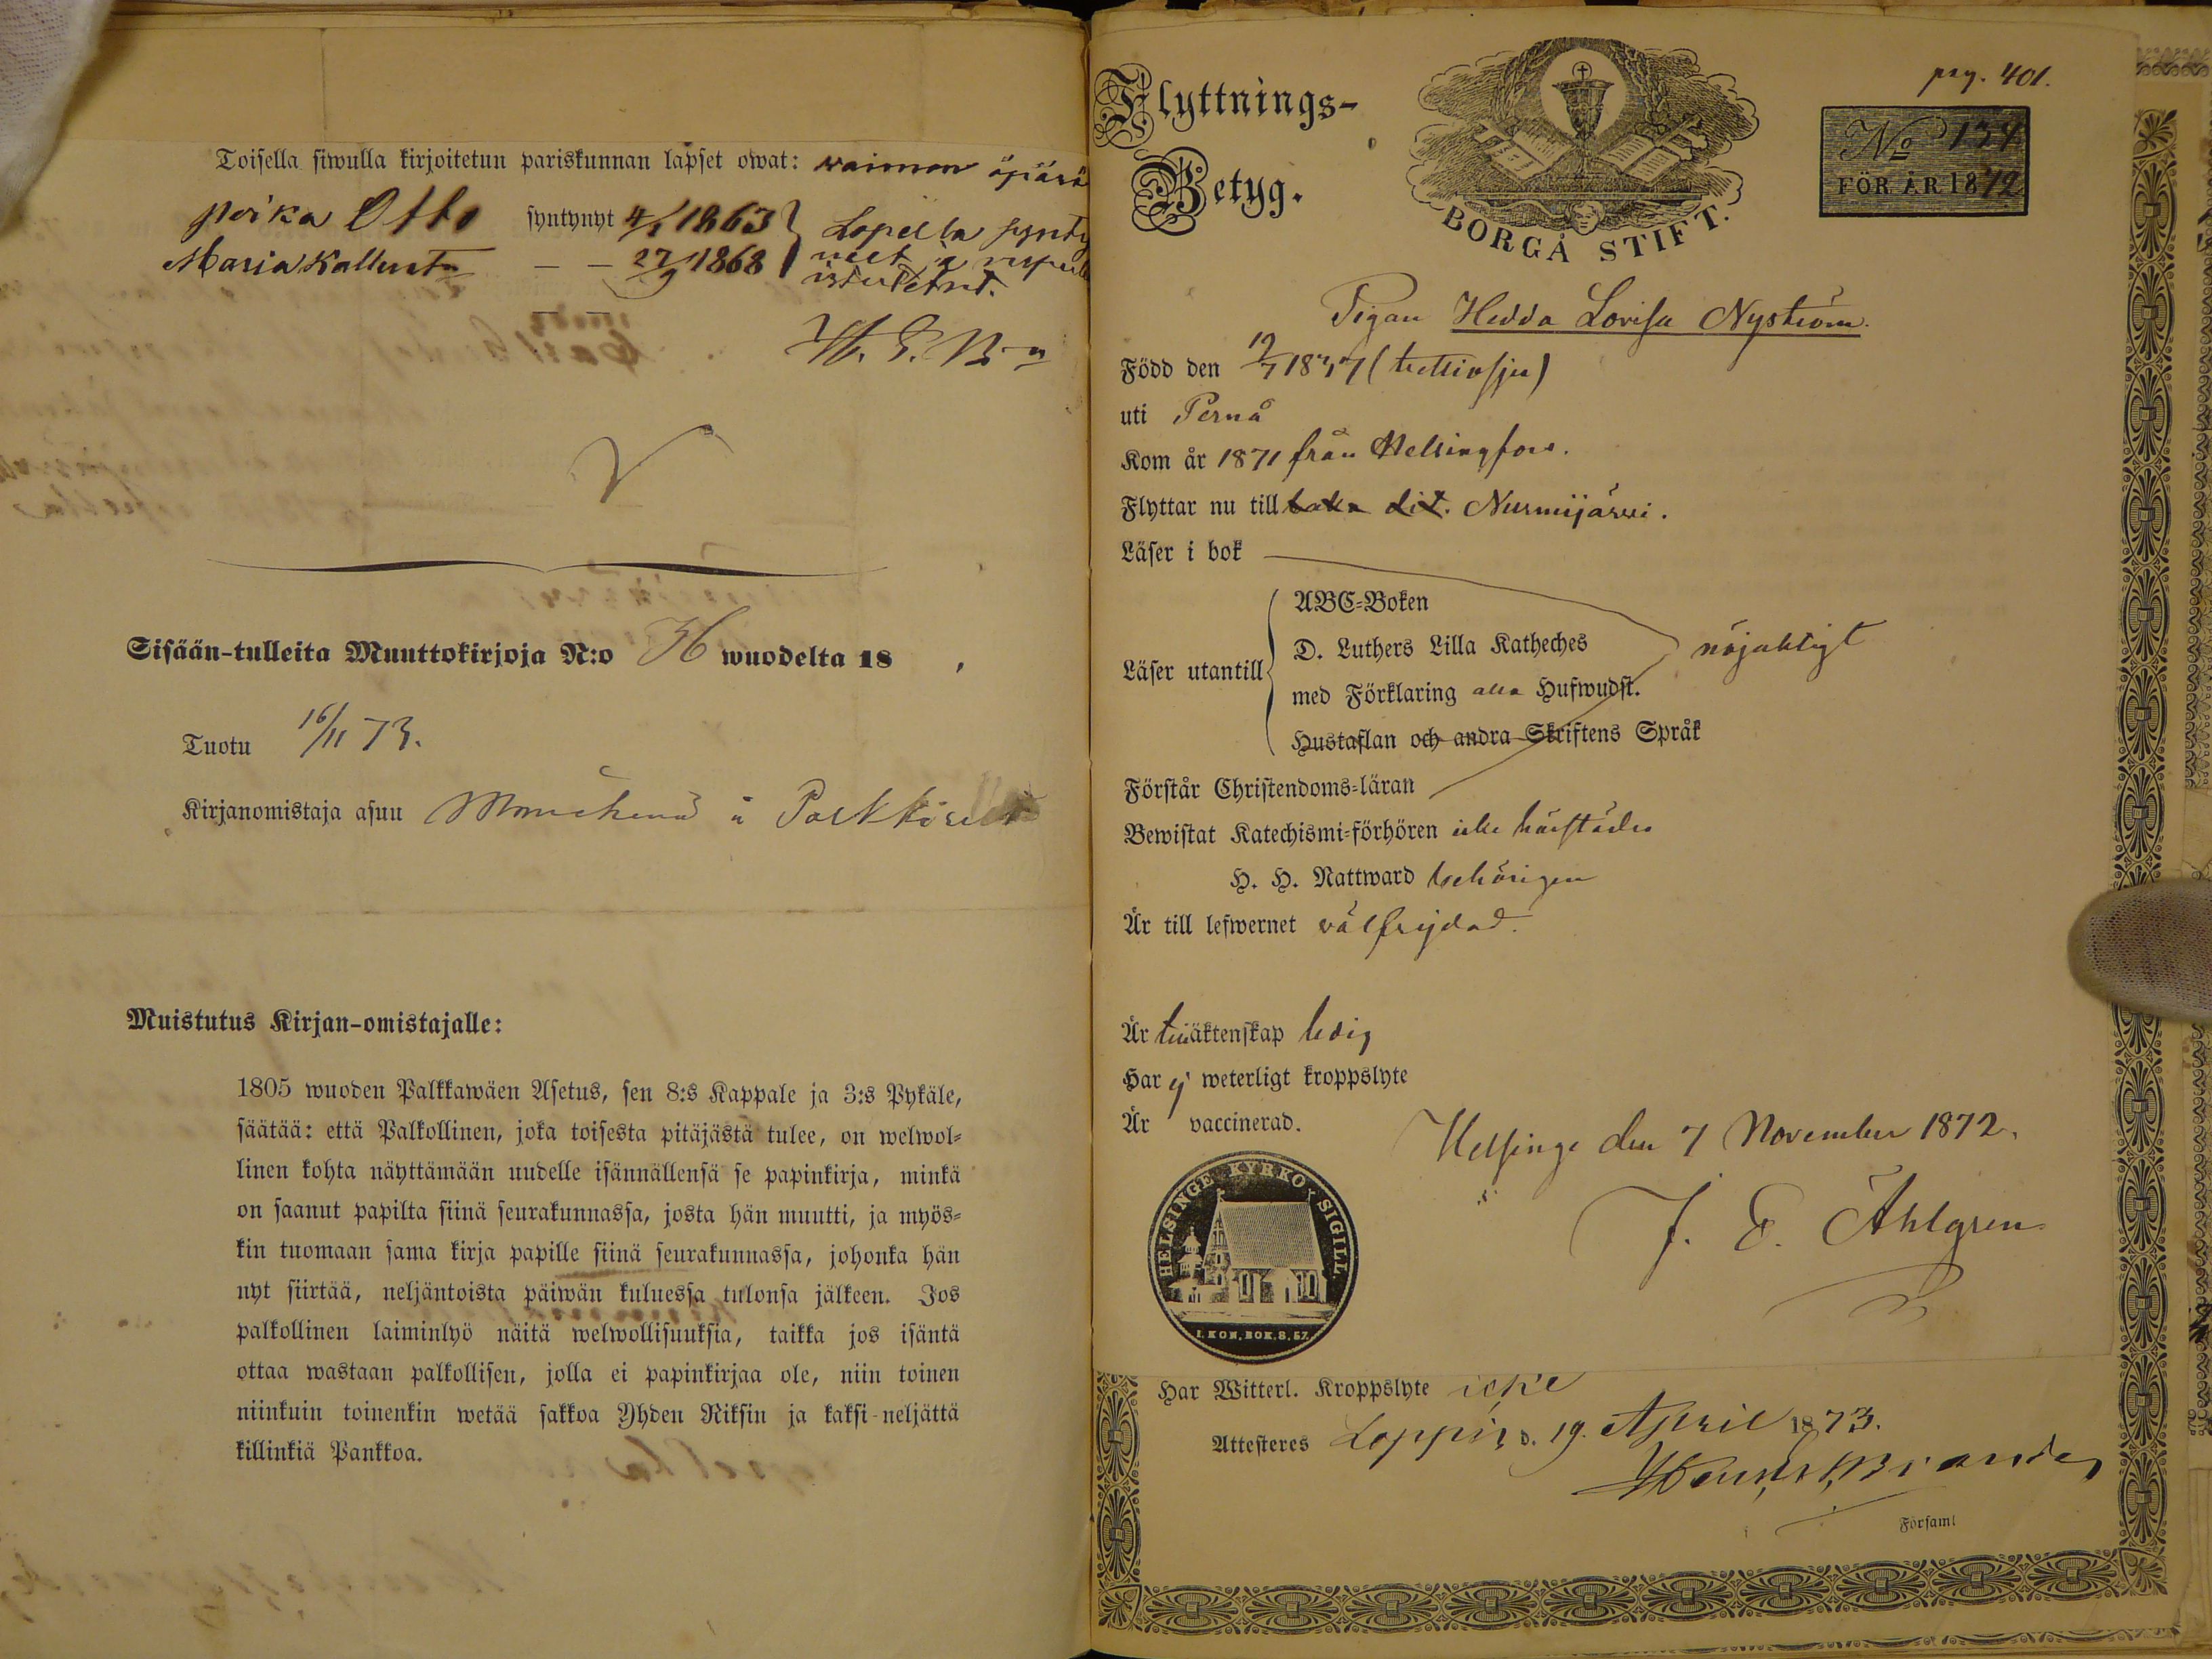 Toisella siwulla kirjoitetun pariskunnan lapset owat: waimon äpärä
poika Otto syntynyt 4/1 1863 } Lopella synty
Maria Kallunta — — 27/9 1868 neet ja
istutetut.
Sisään-tulleita Muuttokirjoja N:o wuodelta 18 .
Tuotu 16/11 73.
Kirjanomistaja asuu
Muistutus Kirjan-omistajalle:
1805 wuoden Palkkawäen Asetus, sen 8:s Kappale ja 3:s Pykäle,
säätää: että Palkollinen, joka toisesta pitäjästä tulee, on welwol-
linen kohta näyttämään uudelle isännällensä se papinkirja, minkä
on saanut papilta siinä seurakunnassa, josta hän muutti, ja myös-
kin tuomaan sama kirja papille siinä seurakunnassa, johonka hän
nyt siirtää, neljäntoista päiwän kuluessa tulonsa jälkeen. Jos
palkollinen laiminlyö näitä welwollisuuksia, taikka jos isäntä
ottaa wastaan palkollisen, jolla ei papinkirjaa ole, niin toinen
niinkuin toinenkin wetää sakkoa Yhden Riksin ja kaksi-neljättä
killinkiä Pankkoa.
pag. 401.
Flyttnings-
Betyg.
BORGÅ STIFT.
No 134
FÖR ÅR 1872
Pigan Hedda Lovisa Nyström.
Född den 19/7 1837 (trettiosju)
uti Pernå
Kom år 1871 från Helsingfors.
Flyttar nu till baka dit. Nurmijärvi.
Läser i bok
Läser utantill
ABC-Boken
D. Luthers Lilla Katheches
med Förklaring alla Hufwudst.
Hustaflan och andra Skriftens Språk
nöjaktigt
Förstår Christendoms-läran
Bewistat Katechismi-förhören icke härstädes
H. H. Nattward behörigen
Är till lefwernet välfrejdad.
Är till äktenskap ledig
Har ej weterligt kroppslyte
Är vaccinerad.
Helsinge den 7 November 1872.
J. E. Åhlgren
HELSINGE KYRKO SIGILL
I. KON. BOK. 8. 57.
Har Witterl. Kroppslyte icke
Attesteres Loppis d. 19. April 1873.
Församl